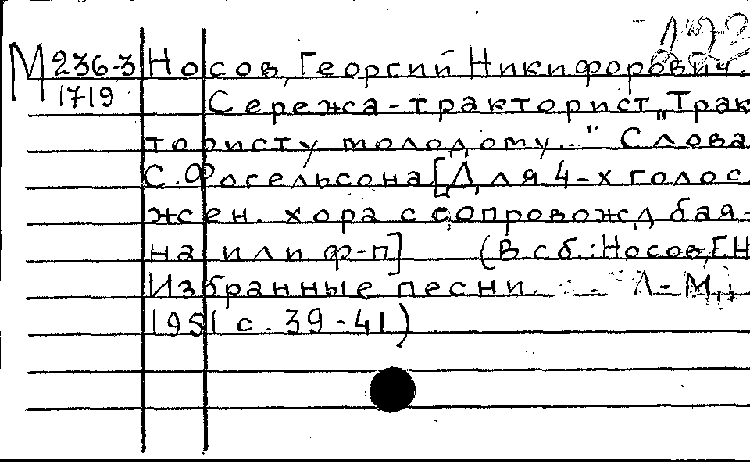 М 236-3 Носов, Георгий Никифорович.
1719 Сережа-тракторист „Трак
тористу молодому..." Слова
С. Фогельсона [Для 4-х голос
жен. хора с сопровожд бая-
на или ф-п] (В сб.: Носов, Г.Н
Избранные песни. Л-М,
1951 с. 39-41)